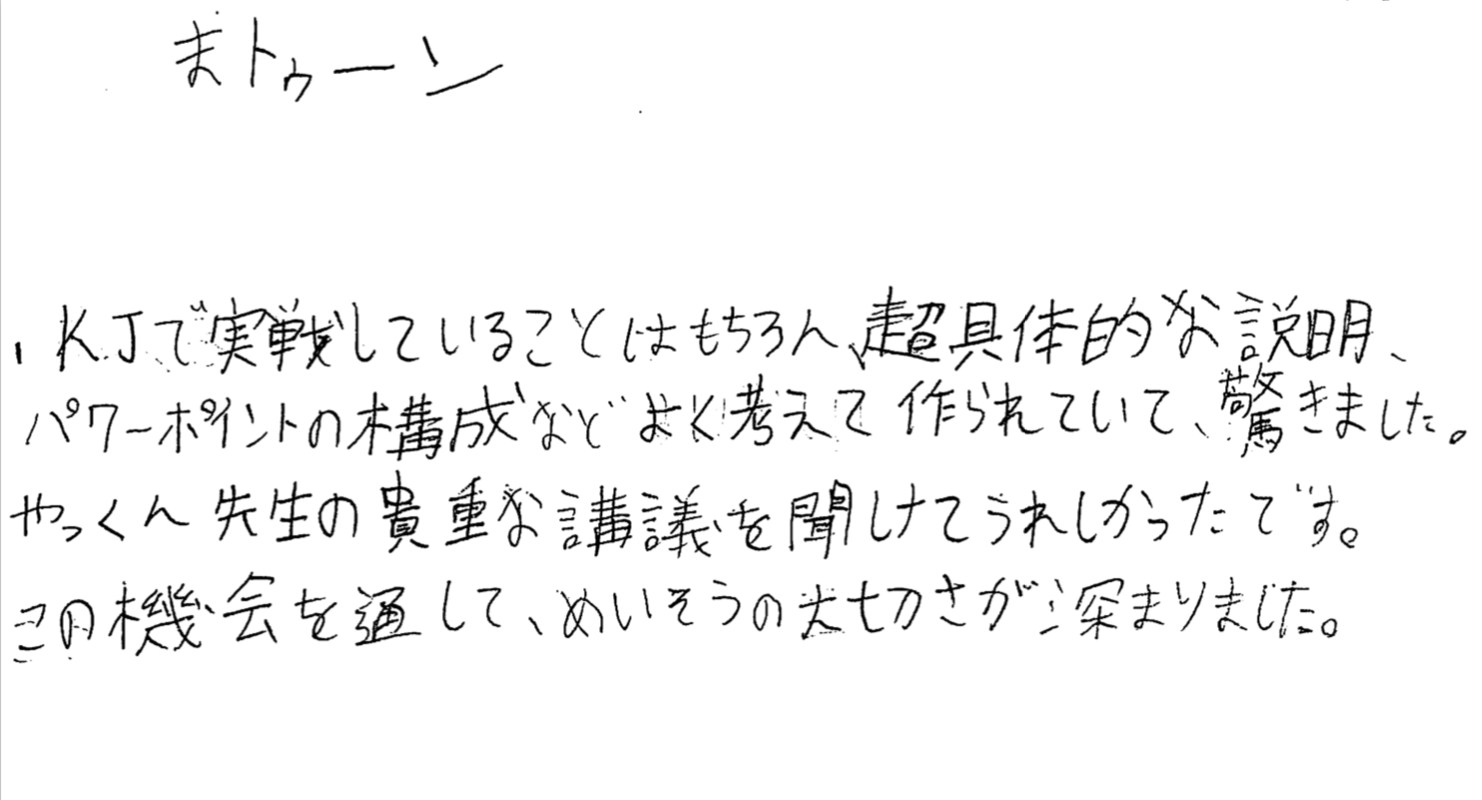 まトゥーン
、KJで実戦していることはもちろん、超具体的な説明、
パワーポイントの構成などよく考えて作られていて、驚きました。
やっくん先生の貴重な講議を聞けてうれしかったです。
この機会を通して、めいそうの大切さが深まりました。